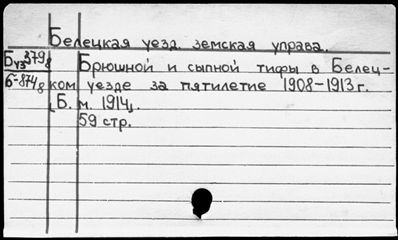 Белецкая уезд. земская управа.
Б 379/8 Брюшной и сыпной тифы в Белец-
Б-874/8 ком уезде за пятилетие 1908-1913 г.
[Б. м. 1914].
59 стр.